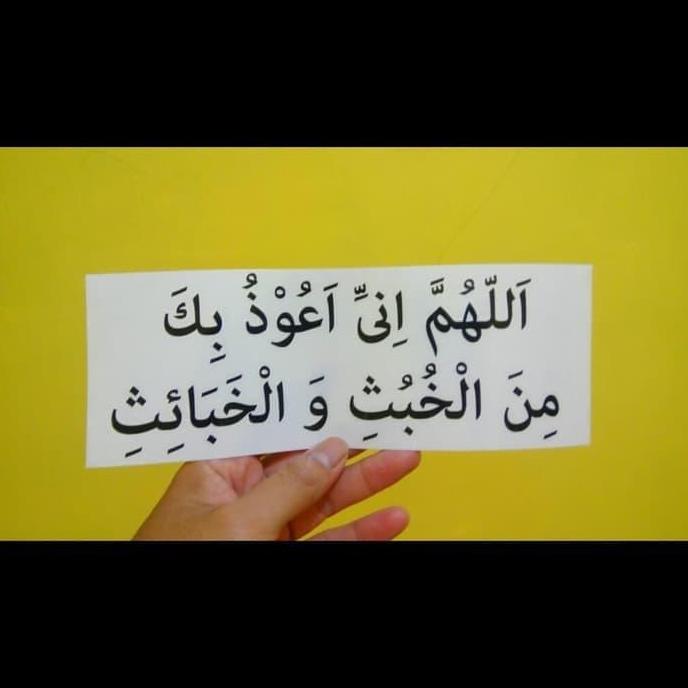 اَللّٰهُمَّ اِنىِّ اَعُوْذُ بِكَ
مِنَ الْخُبُثِ وَ الْخَبَائِثِ